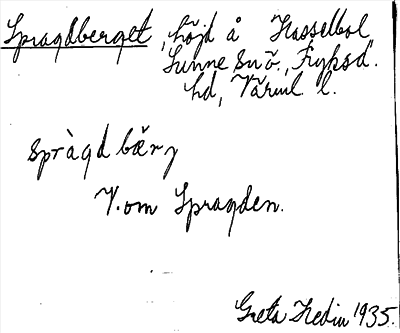 Spragdberget, höjd å Hasselbol
Sunne sn ö., Fryksd.
hd, Värml l.
spràgd bærj
V. om Spragden.
Greta Hedin 1935.